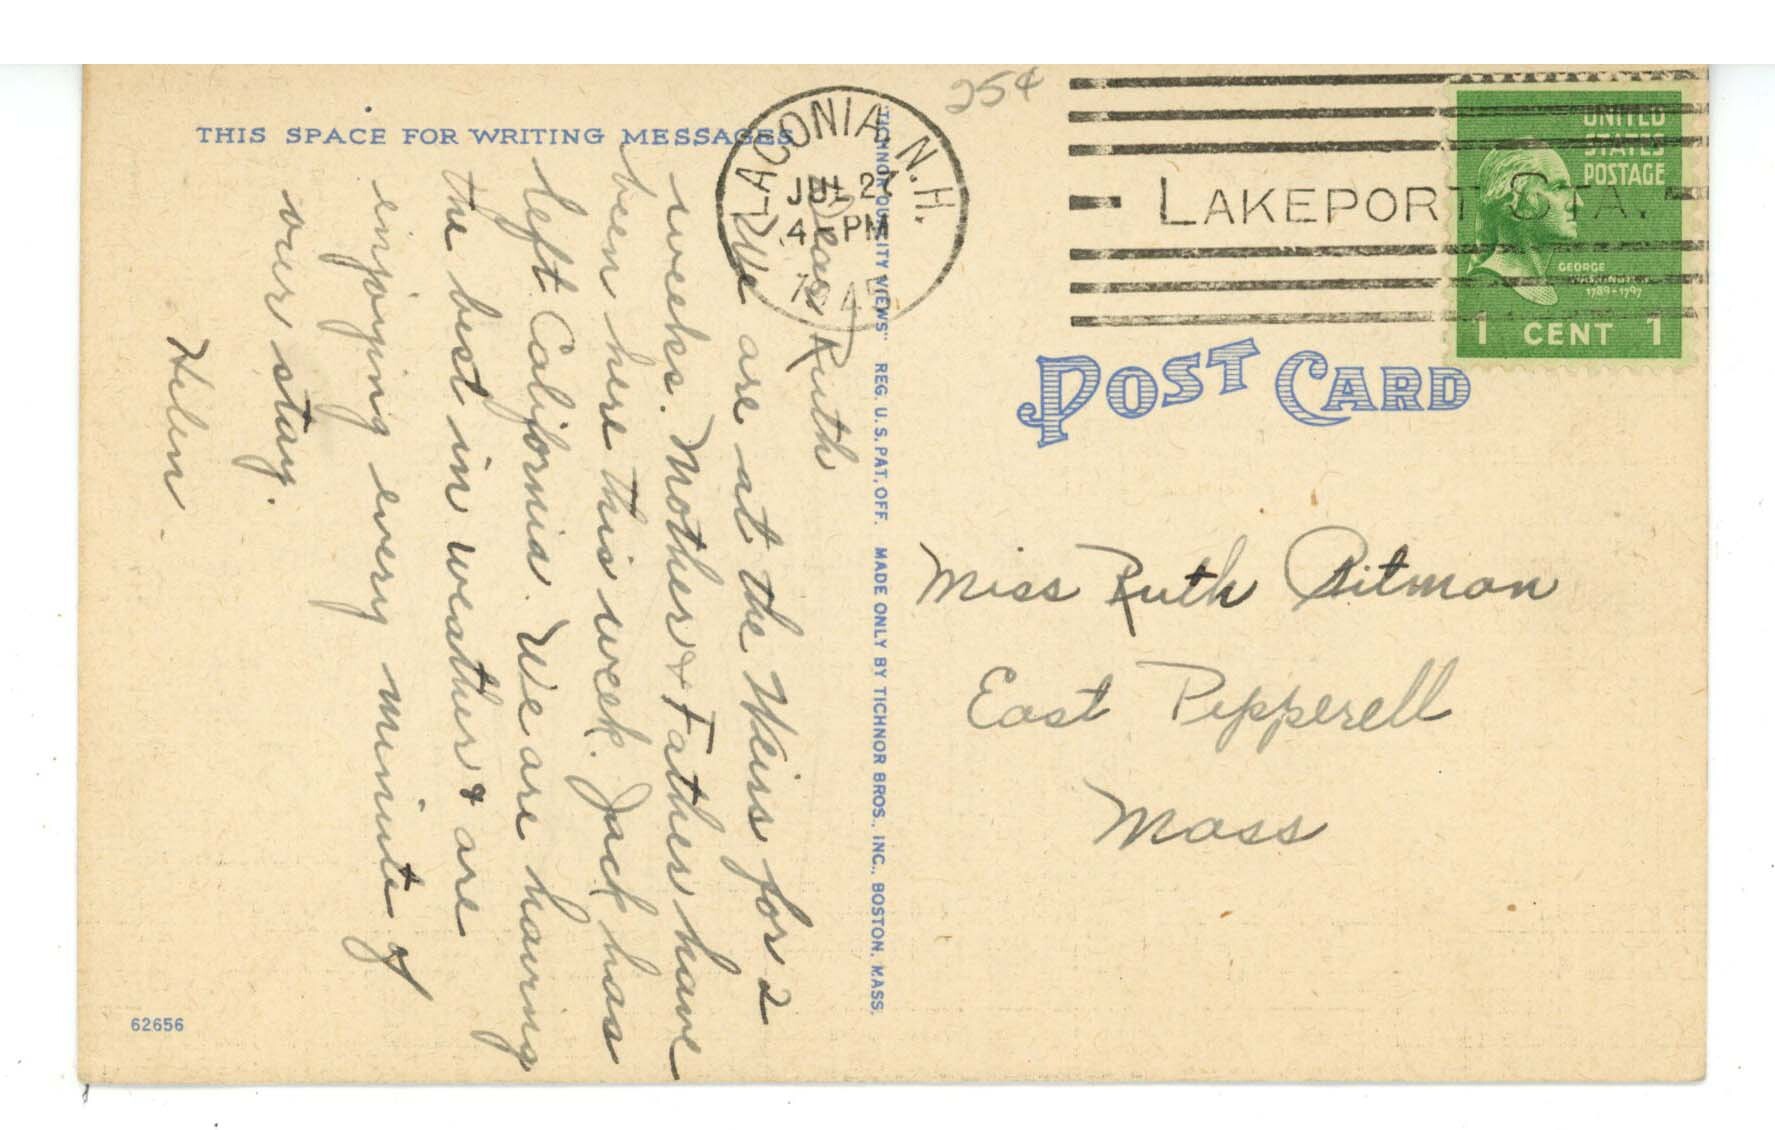 THIS SPACE FOR WRITING MESSAGES
Dear Ruth
We are at the Weirs for 2
weeks. Mother & Father have
been here this week. Jack has
left California. We are having
the best in weather & are
enjoying every minute of
our stay.
Helen.
62656
"TICHNOR QUALITY VIEWS" REG. U.S. PAT. OFF. MADE ONLY BY TICHNOR BROS., INC., BOSTON, MASS.
25¢
LACONIA, N.H.
JUL 27
4 - PM
LAKEPORT STA.
UNITED
STATES
POSTAGE
GEORGE
WASHINGTON
1789-1797
1 CENT 1
POST CARD
Miss Ruth Pitman
East Pepperell
Mass